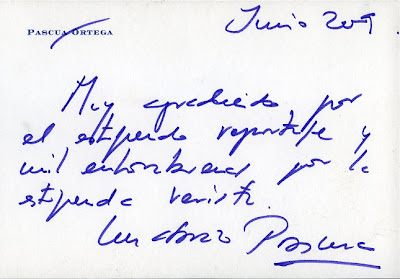 PASCUA ORTEGA
Junio 2009.
Muy agradecido por
el estupendo reportaje y
mil enhorabuenas por la
estupenda revista.
Un abrazo Pascua